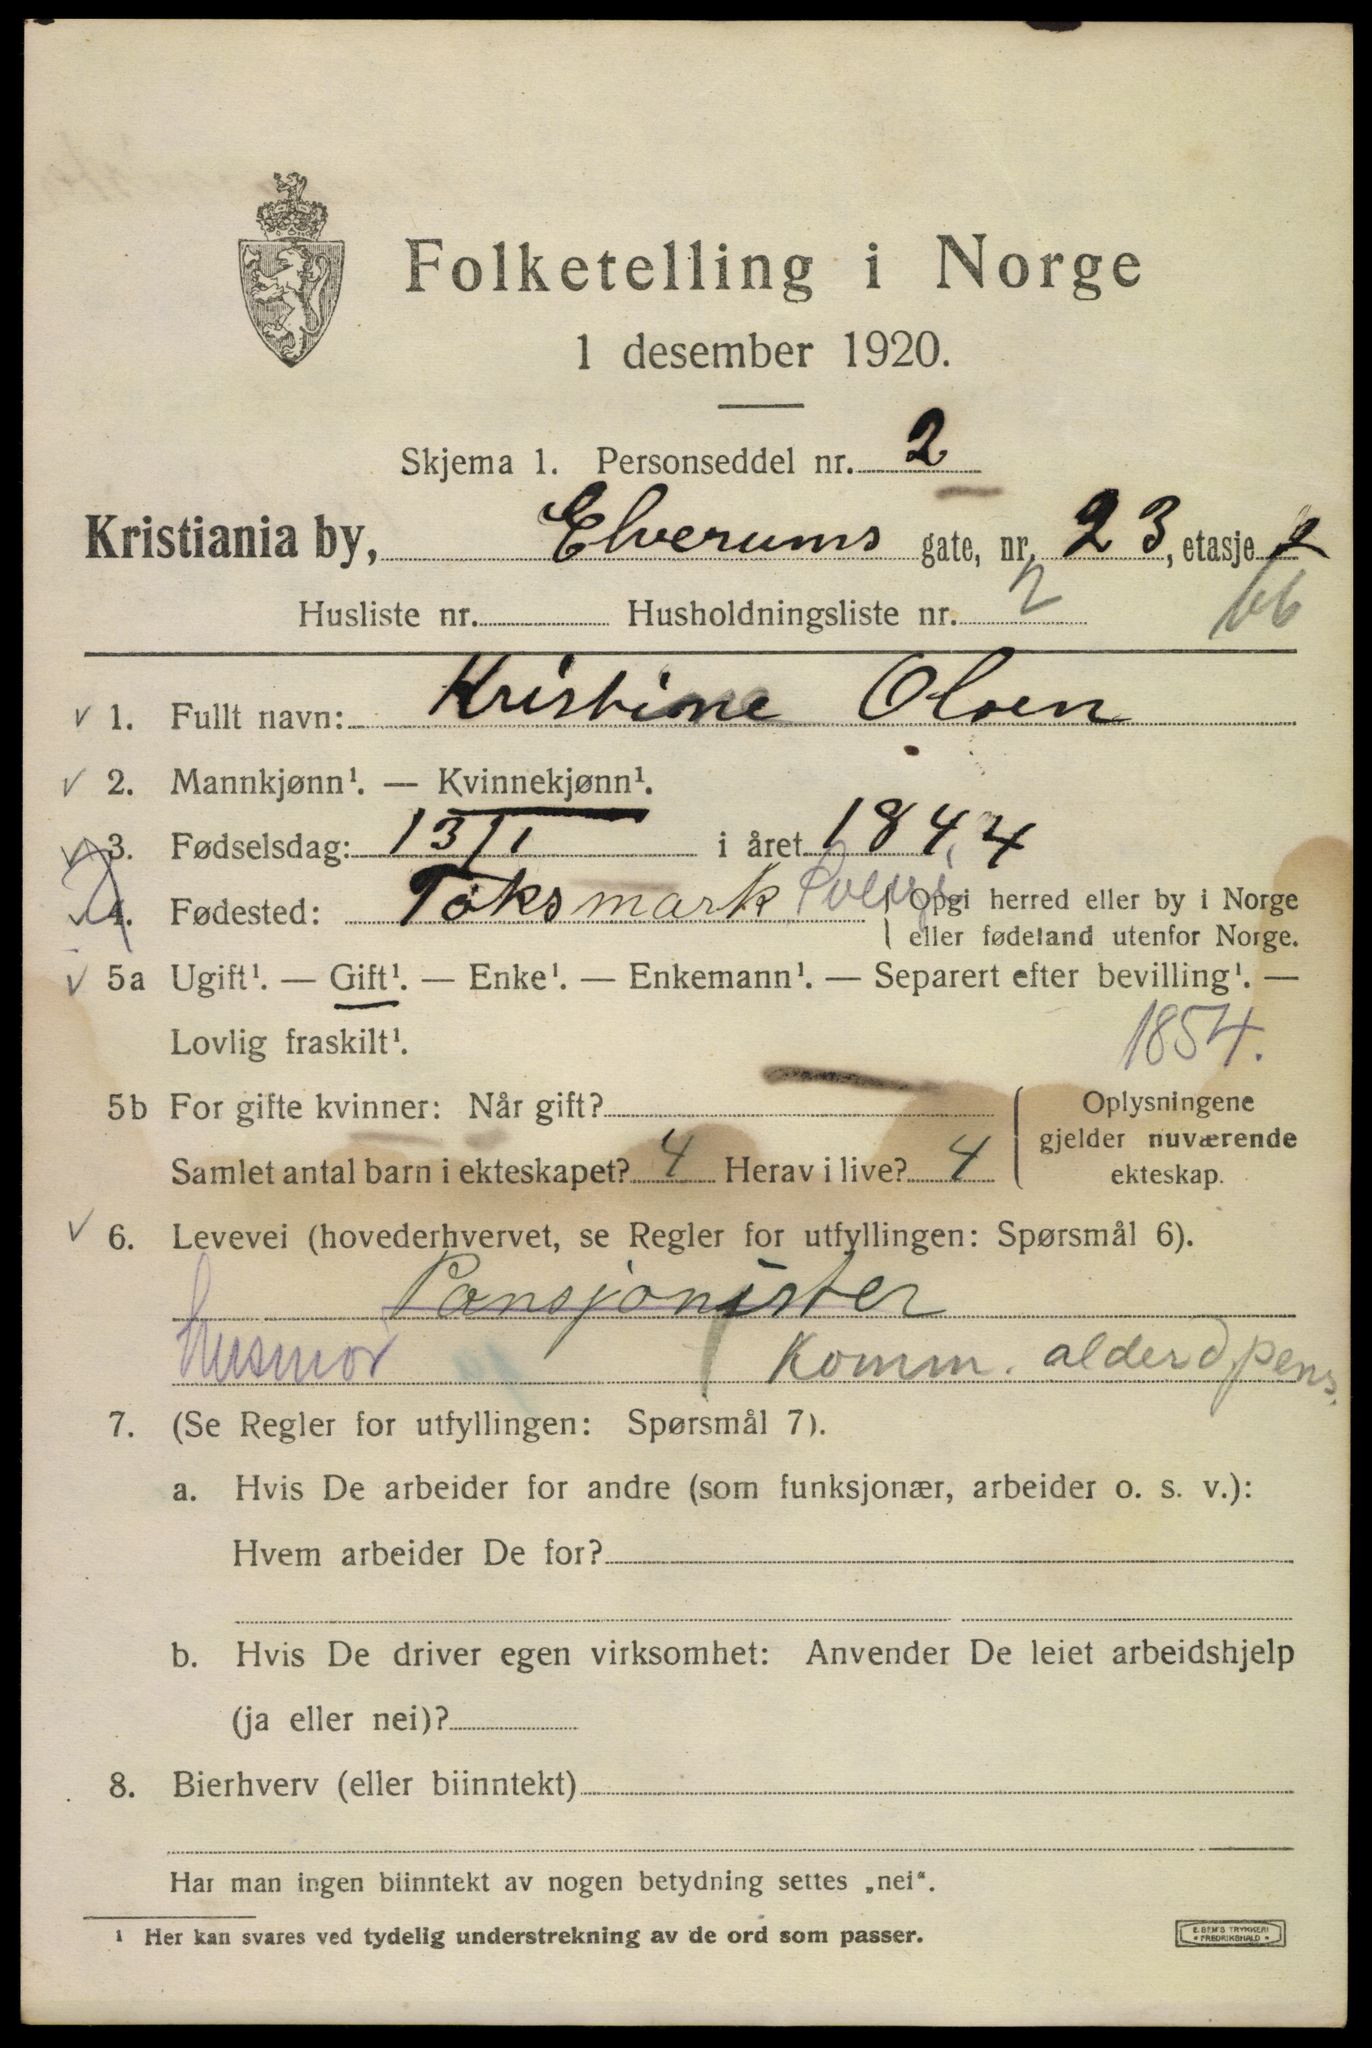 Folketelling i Norge
1 desember 1920.
Skjema 1. Personseddel nr. 2
Kristiania by, Elverums gate, nr. 23, etasje 2
Husliste nr. Husholdningsliste nr. 2 66
1. Fullt navn: Kristine Olsen
2. Mannkjønn¹. — Kvinnekjønn¹.
3. Fødselsdag: 13/1 i året 1844
4. Fødested: Töksmark Sverige { Opgi herred eller by i Norge
eller fødeland utenfor Norge.
5a Ugift¹. — Gift¹. — Enke¹. — Enkemann¹. — Separert efter bevilling¹. —
Lovlig fraskilt¹. 1854.
5b For gifte kvinner: Når gift? { Oplysningene
gjelder nuværende
Samlet antal barn i ekteskapet? 4 Herav i live? 4 ekteskap.
6. Levevei (hovederhvervet, se Regler for utfyllingen: Spørsmål 6).
Pansjonister
husmor Komm. alderd pens.
7. (Se Regler for utfyllingen: Spørsmål 7).
a. Hvis De arbeider for andre (som funksjonær, arbeider o. s. v.):
Hvem arbeider De for?
b. Hvis De driver egen virksomhet: Anvender De leiet arbeidshjelp
(ja eller nei)?
8. Bierhverv (eller biinntekt)
Har man ingen biinntekt av nogen betydning settes „nei“.
¹ Her kan svares ved tydelig understrekning av de ord som passer.
E. SEM'S TRYKKERI
FREDRIKSHALD